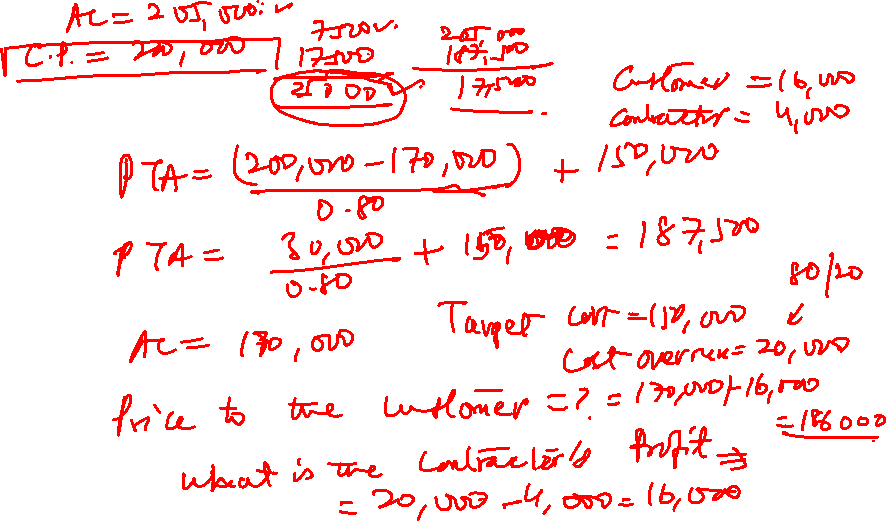 AC = 205,000
C.P. = 200,000
7500
17500
25000
205,000
187,500
17,500
Customer = 16,000
Contractor = 4,000
PTA = (200,000 - 170,000) / 0.80 + 150,000
PTA = 30,000 / 0.80 + 150,000 = 187,500
80/20
AC = 170,000
Target cost = 150,000
Cost overrun = 20,000
Price to the customer = ? = 170,000 + 16,000
= 186000
What is the contractor's profit ⇒
= 20,000 - 4,000 = 16,000